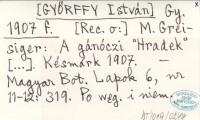 [GYÖRFFY István] Gy.
1907 f. [Rec. o:] M. Grei-
siger: A gánóczi "Hradek"
[...]. Késmárk 1907. –
Magyar Bot. Lapok 6, nr
11-12: 319. Po węg. i niem.